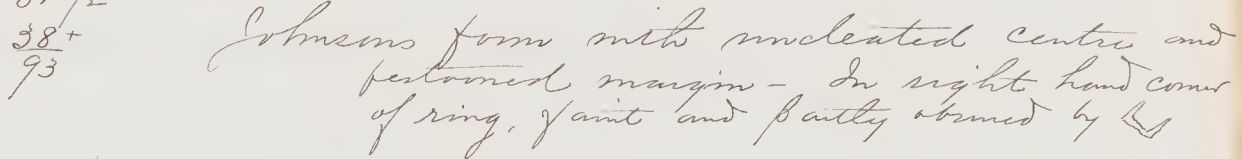 38+
93
Johnsons form with nucleated centre and
festooned margin - In right hand corner
of ring, faint and partly obscured by